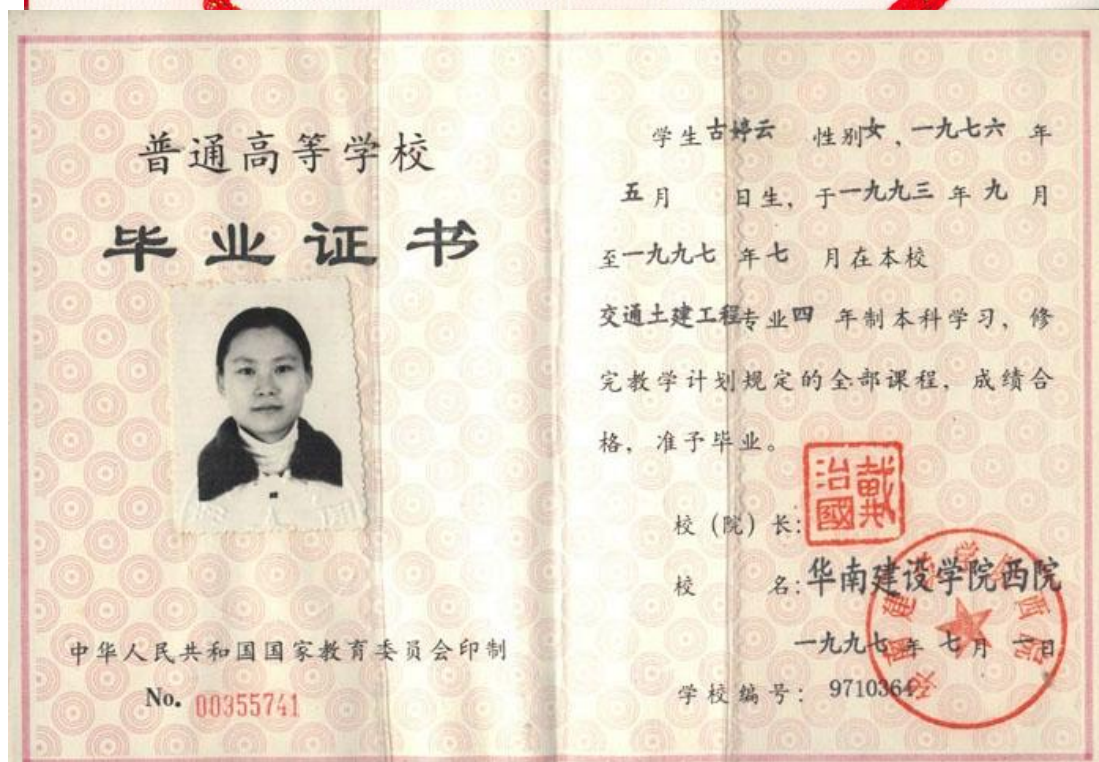 普通高等学校
毕业证书
中华人民共和国国家教育委员会印制
No. 00355741
学生古婷云 性别女，一九七六 年
五月 日生，于一九九三 年 九 月
至一九九七 年 七 月在本校
交通土建工程专业四 年制本科学习，修
完教学计划规定的全部课程，成绩合
格，准予毕业。
校（院）长：
戴治國
校 名：华南建设学院西院
一九九七 年 七 月 日
学校编号： 9710364